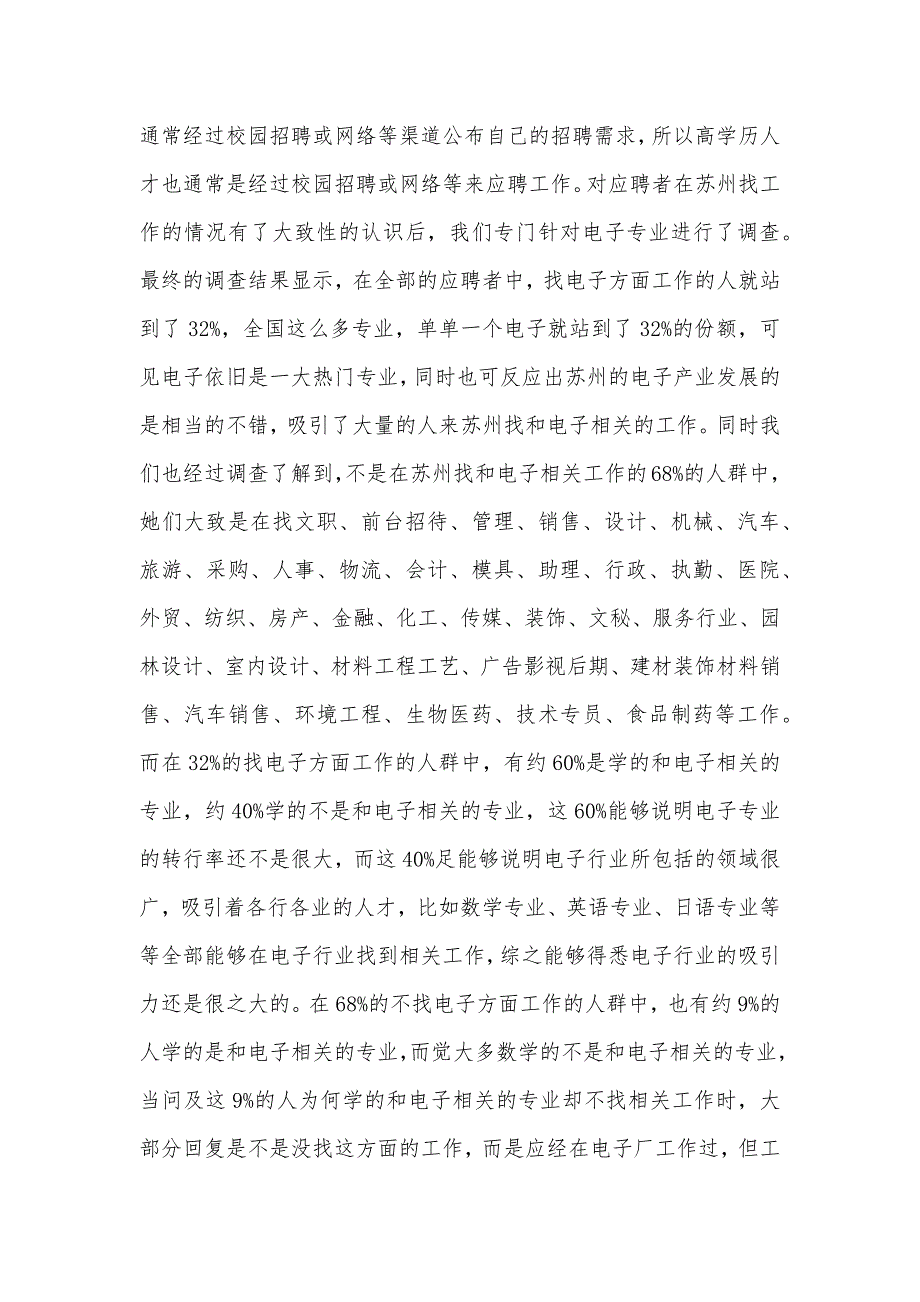 通常经过校园招聘或网络等渠道公布自己的招聘需求，所以高学历人
才也通常是经过校园招聘或网络等来应聘工作。对应聘者在苏州找工
作的情况有了大致性的认识后，我们专门针对电子专业进行了调查。
最终的调查结果显示，在全部的应聘者中，找电子方面工作的人就站
到了32%，全国这么多专业，单单一个电子就站到了32%的份额，可
见电子依旧是一大热门专业，同时也可反应出苏州的电子产业发展的
是相当的不错，吸引了大量的人来苏州找和电子相关的工作。同时我
们也经过调查了解到，不是在苏州找和电子相关工作的68%的人群中，
她们大致是在找文职、前台招待、管理、销售、设计、机械、汽车、
旅游、采购、人事、物流、会计、模具、助理、行政、执勤、医院、
外贸、纺织、房产、金融、化工、传媒、装饰、文秘、服务行业、园
林设计、室内设计、材料工程工艺、广告影视后期、建材装饰材料销
售、汽车销售、环境工程、生物医药、技术专员、食品制药等工作。
而在32%的找电子方面工作的人群中，有约60%是学的和电子相关的
专业，约40%学的不是和电子相关的专业，这60%能够说明电子专业
的转行率还不是很大，而这40%足能够说明电子行业所包括的领域很
广，吸引着各行各业的人才，比如数学专业、英语专业、日语专业等
等全部能够在电子行业找到相关工作，综之能够得悉电子行业的吸引
力还是很之大的。在68%的不找电子方面工作的人群中，也有约9%的
人学的是和电子相关的专业，而觉大多数学的不是和电子相关的专业，
当问及这9%的人为何学的和电子相关的专业却不找相关工作时，大
部分回复是不是没找这方面的工作，而是应经在电子厂工作过，但工